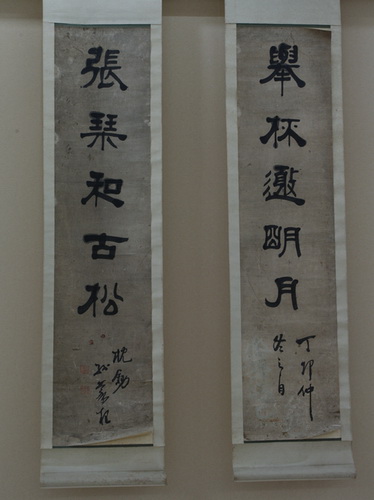 舉杯邀明月
丁卯仲
冬之月
張琹和古松